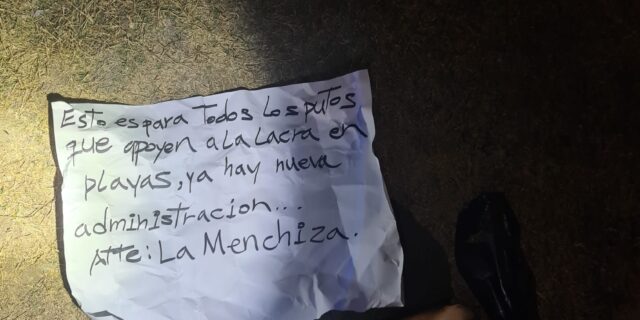 Esto es para Todos Los putos
que apoyen a La Lacra en
playas, ya hay nueva
administracion...
Atte: La Menchiza.